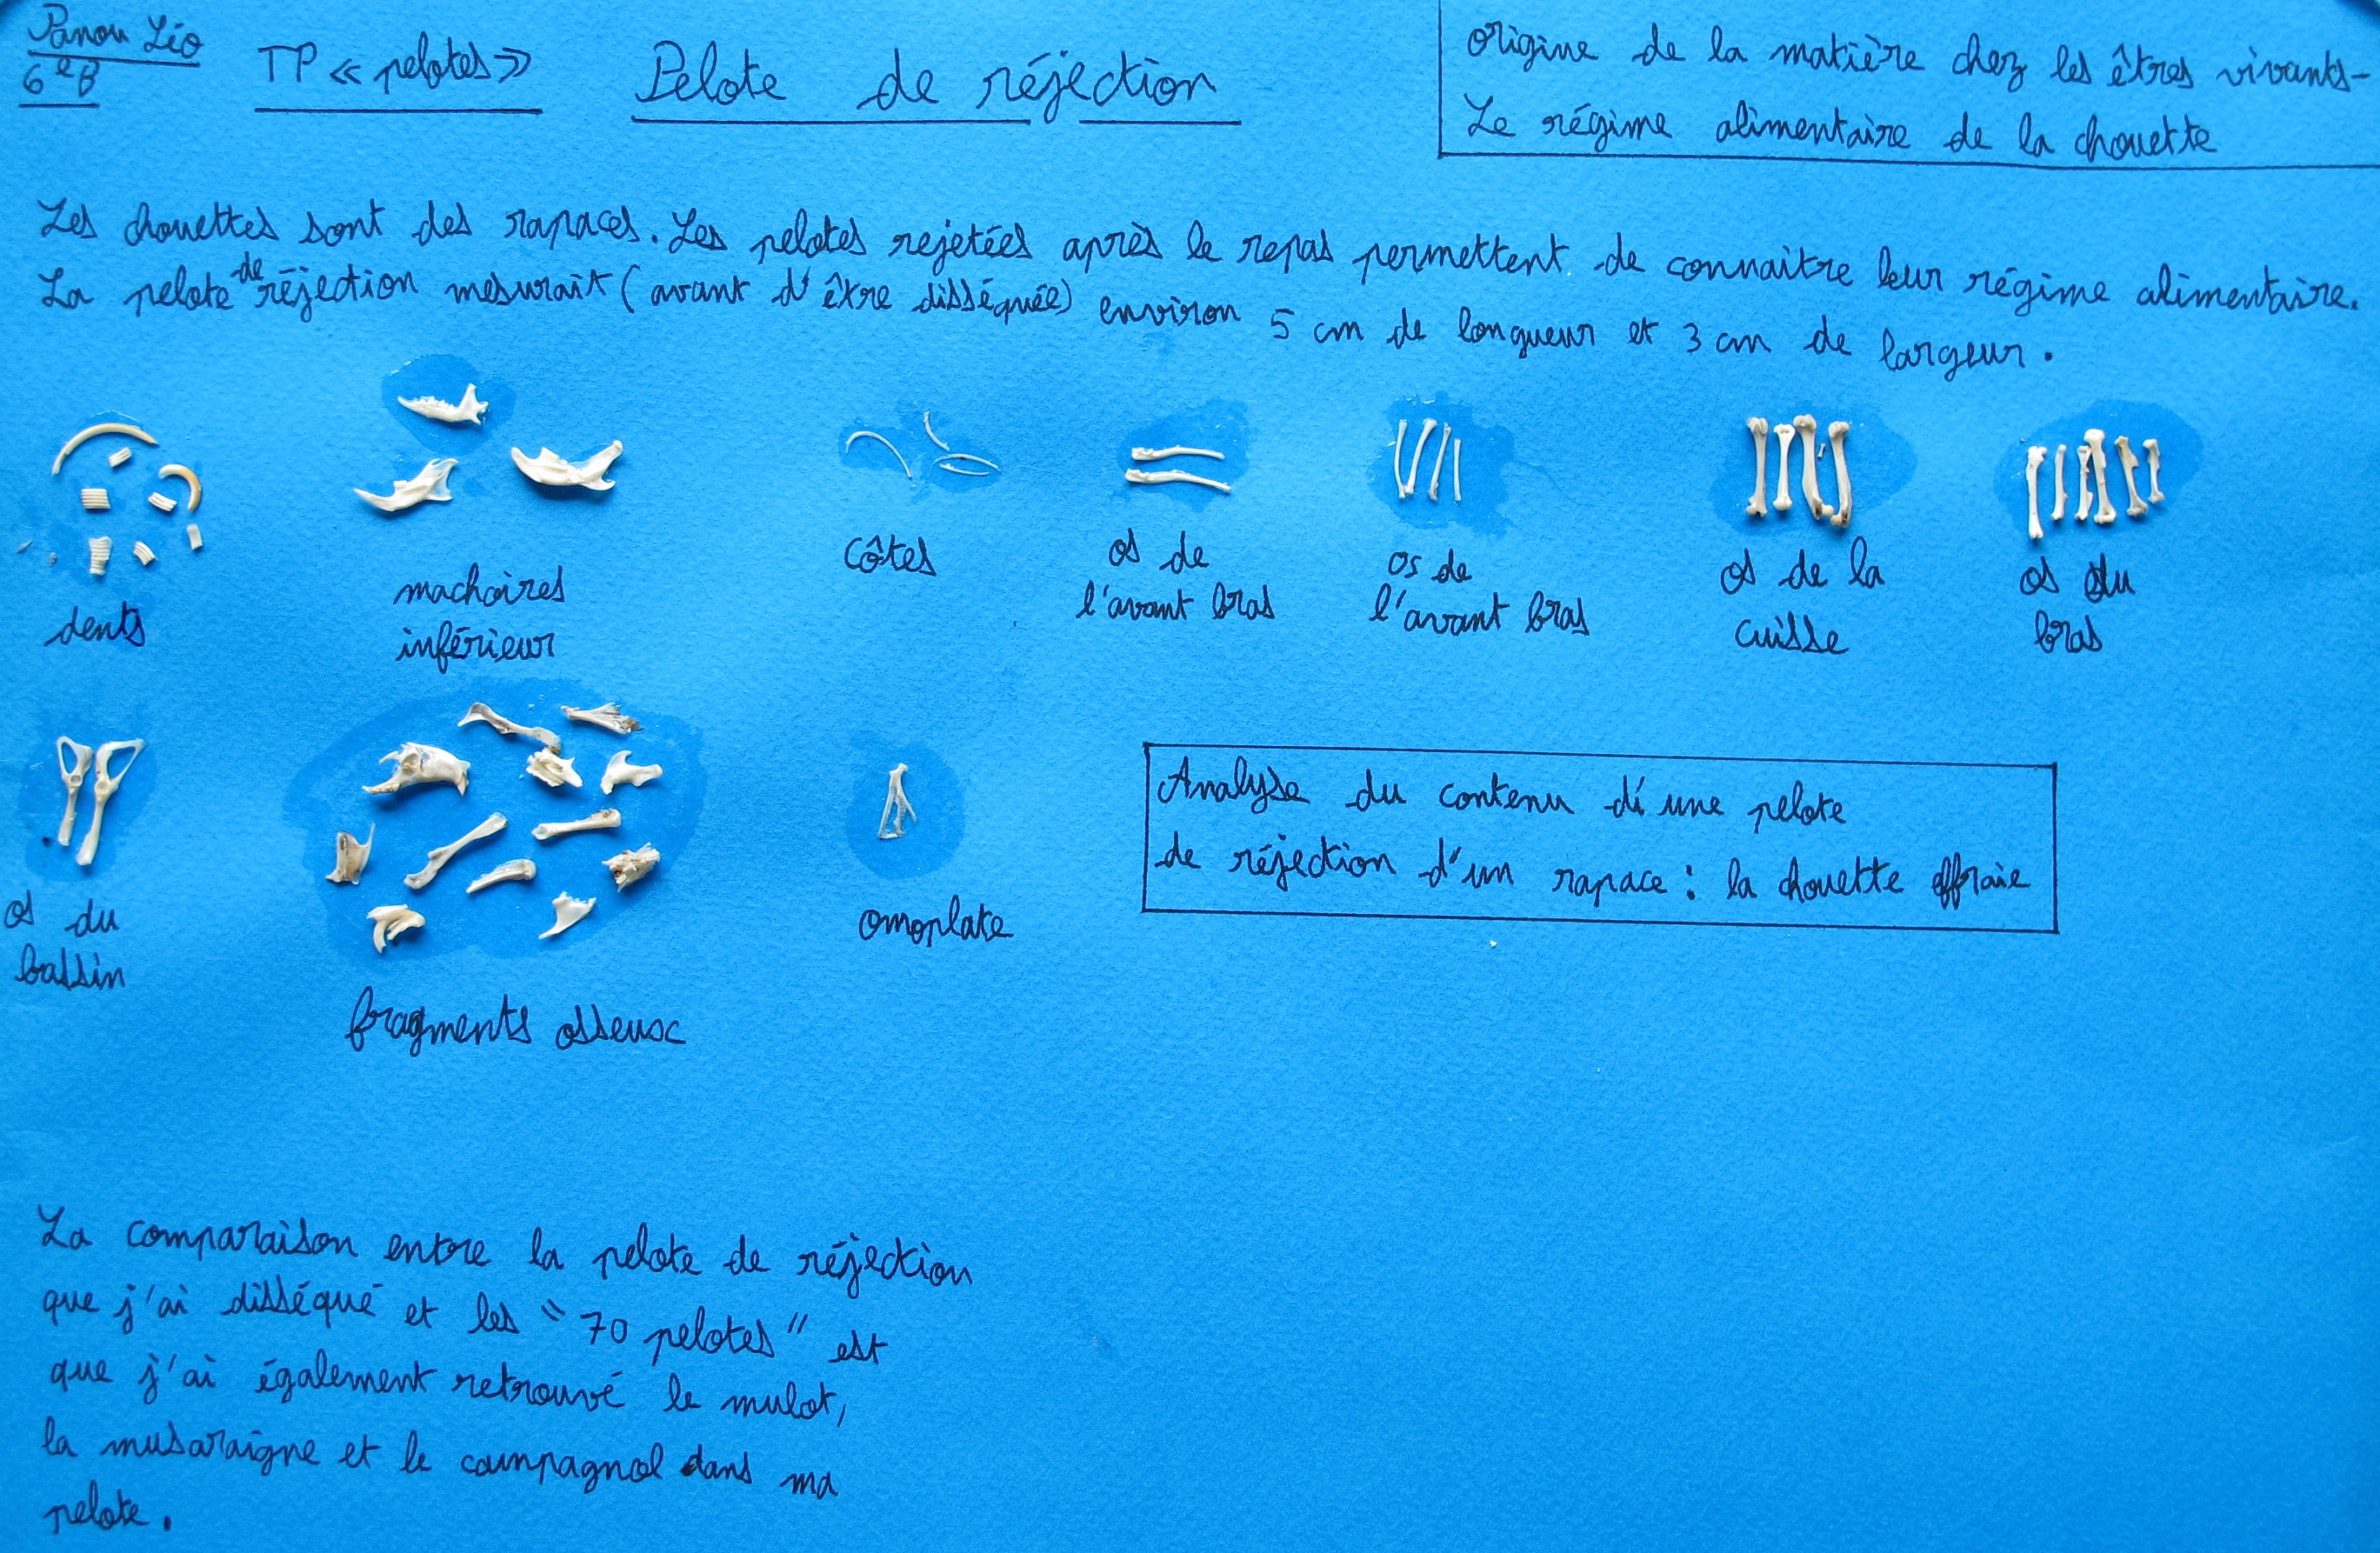 Panou Léo
6eB
TP « pelotes »
Pelote de réjection
origine de la matière chez les êtres vivants-
Le régime alimentaire de la chouette
Les chouettes sont des rapaces. Les pelotes rejetées après le repas permettent de connaitre leur régime alimentaire.
La pelote de réjection mesurait (avant d'être disséquée) environ 5 cm de longueur et 3 cm de largeur.
dents
machoires
inférieur
côtes
os de
l'avant bras
os de
l'avant bras
os de la
cuisse
os du
bras
os du
bassin
fragments osseux
omoplate
Analyse du contenu d'une pelote
de réjection d'un rapace : la chouette effraie
La comparaison entre la pelote de réjection
que j'ai disséqué et les "70 pelotes" est
que j'ai également retrouvé le mulot,
la musaraigne et le campagnol dans ma
pelote.